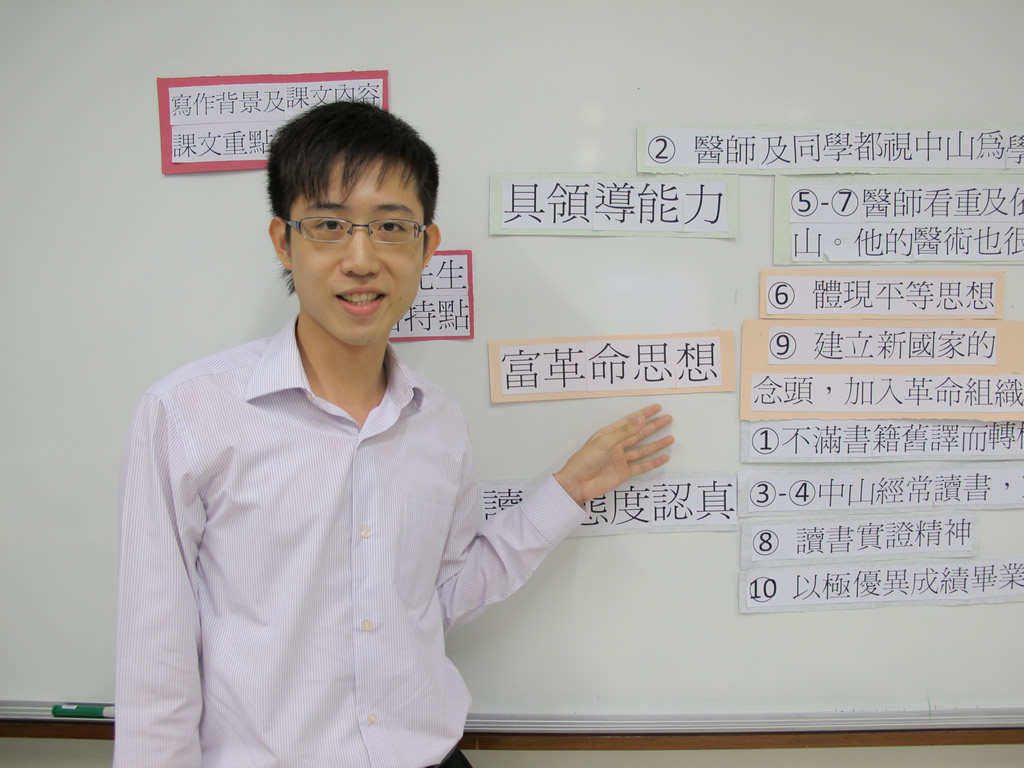 寫作背景及課文內容
課文重點
先生
特點
具領導能力
富革命思想
讀 態度認真
② 醫師及同學都視中山為學
⑤-⑦醫師看重及依
山。他的醫術也很
⑥ 體現平等思想
⑨ 建立新國家的
念頭，加入革命組織
①不滿書籍舊譯而轉
③-④中山經常讀書，
⑧ 讀書實證精神
⑩ 以極優異成績畢業